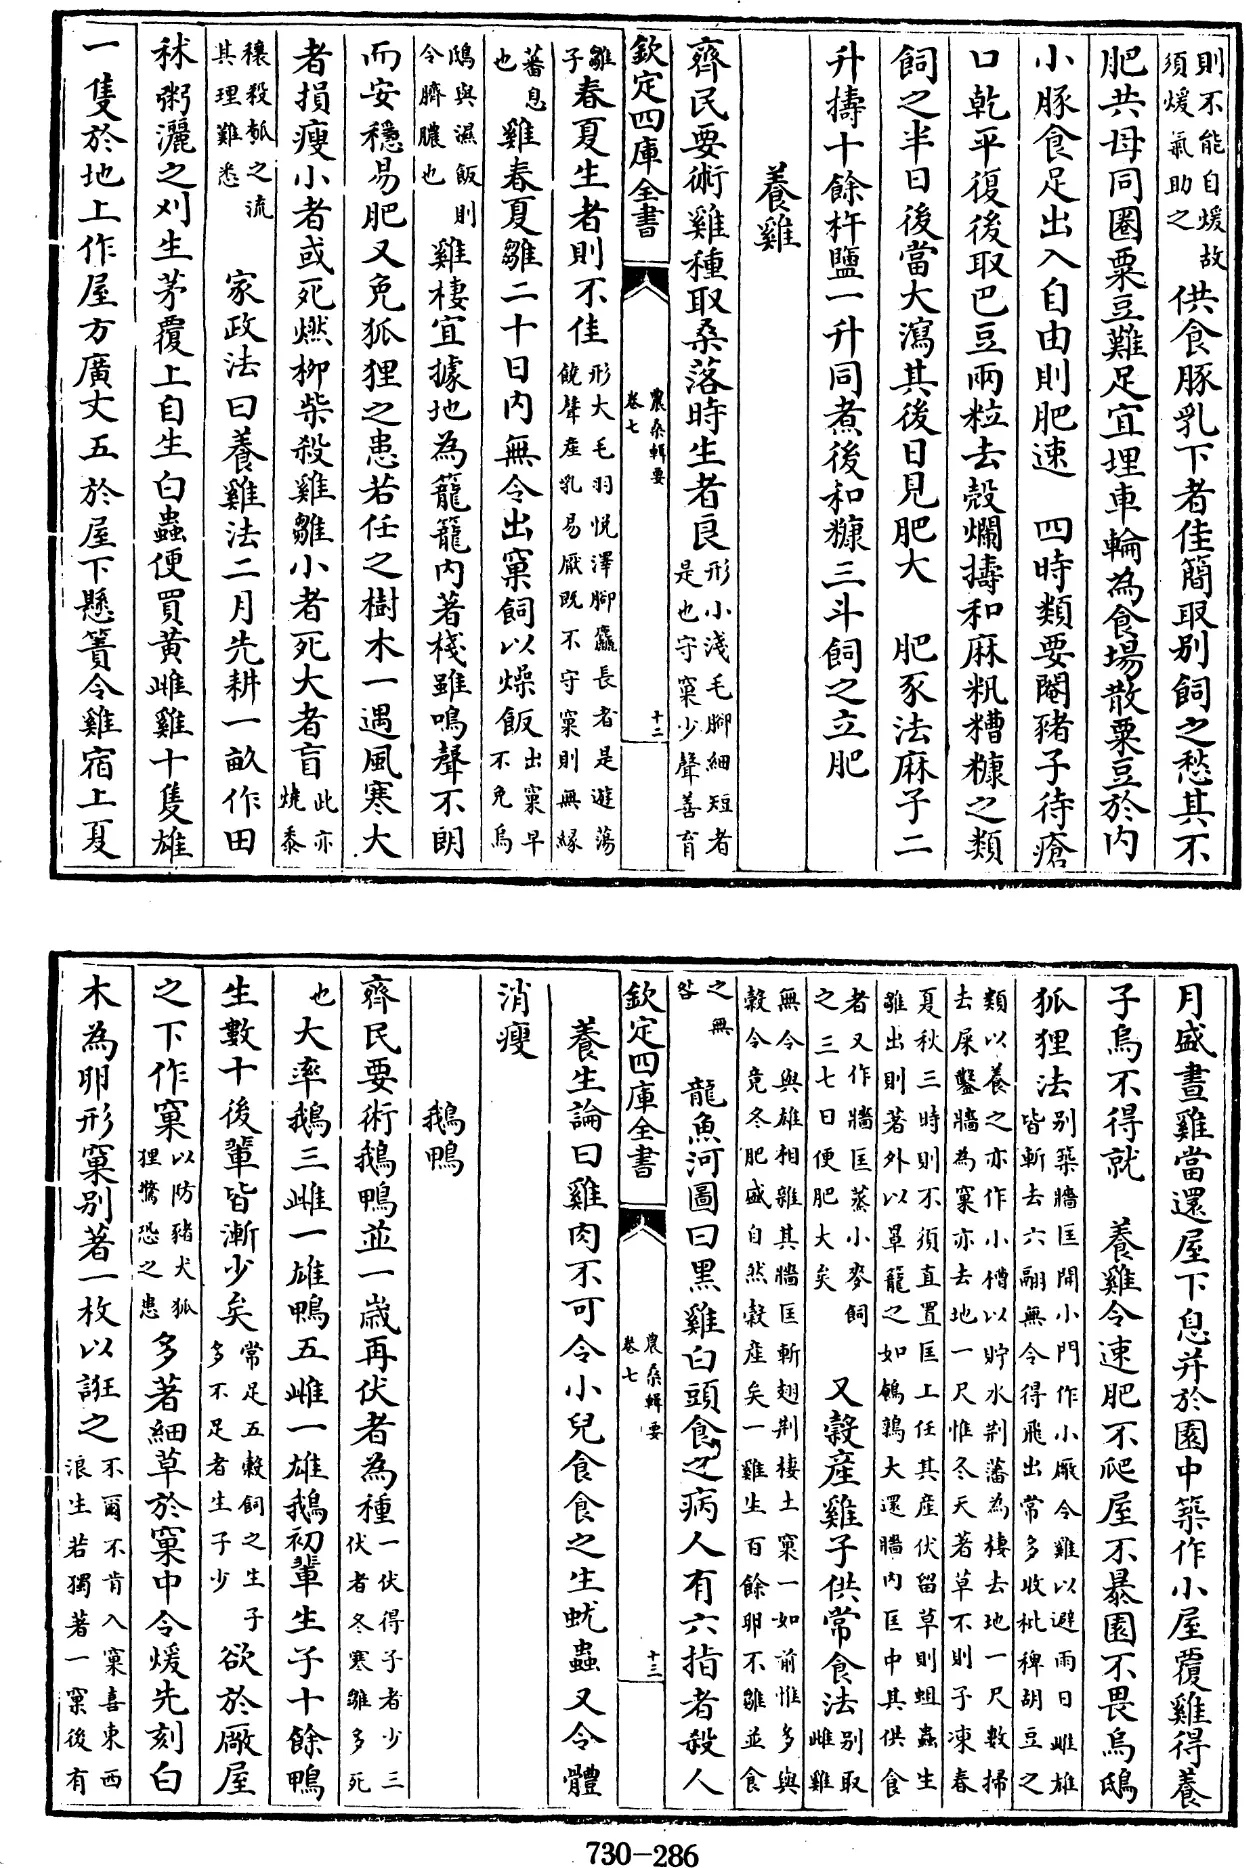 則不能自煖故須煖氣助之供食豚乳下者佳簡取别飼之愁其不
肥共母同圈粟豆難足宜埋車輪為食場散粟豆於内
小豚食足出入自由則肥速　四時類要閹豬子待瘡
口乾平復後取巴豆兩粒去殼爛擣和麻籸糟糠之類
飼之半日後當大瀉其後日見肥大　肥豕法麻子二
升擣十餘杵鹽一升同煮後和糠三斗飼之立肥
養雞
齊民要術雞種取桑落時生者良形小淺毛脚細短者是也守窠少聲善育
欽定四庫全書　農桑輯要卷七　十二
雛子春夏生者則不佳形大毛羽悦澤脚麤長者是遊蕩饒聲産乳易厭既不守窠則無緣
蕃息也雞春夏雛二十日内無令出窠飼以燥飯出窠早不免烏
鴟與濕飯則令臍膿也雞棲宜據地為籠籠内著棧雖鳴聲不朗
而安穩易肥又免狐狸之患若任之樹木一遇風寒大
者損瘦小者或死燃柳柴殺雞雛小者死大者盲此亦燒黍
穰殺瓠之流其理難悉　家政法曰養雞法二月先耕一畝作田
秫粥灑之刈生茅覆上自生白蟲便買黄雌雞十隻雄
一隻於地上作屋方廣丈五於屋下懸簀令雞宿上夏
月盛晝雞當還屋下息并於園中築作小屋覆雞得養
子烏不得就　養雞令速肥不爬屋不暴園不畏烏鴟
狐狸法别築牆匡開小門作小厰令雞以避雨日雌雄皆斬去六翮無令得飛出常多收秕稗胡豆之
類以養之亦作小槽以貯水荆藩為棲去地一尺數掃去屎鑿牆為窠亦去地一尺惟冬天著草不則子凍春
夏秋三時則不須直置匡上任其産伏留草則蛆蟲生雛出則著外以罩籠之如鵪鶉大還牆内匡中其供食
者又作牆匡蒸小麥飼之三七日便肥大矣　又穀産雞子供常食法别取雌雞
無令與雄相雜其牆匡斬翅荆棲土窠一如前惟多與穀令竟冬肥盛自然穀産矣一雞生百餘卵不雛並食
之無咎　龍魚河圖曰黑雞白頭食之病人有六指者殺人
欽定四庫全書　農桑輯要卷七　十三
養生論曰雞肉不可令小兒食食之生蚘蟲又令體
消瘦
鵝鴨
齊民要術鵝鴨並一歲再伏者為種一伏得子者少三伏者冬寒雛多死
也大率鵝三雌一雄鴨五雌一雄鵝初輩生子十餘鴨
生數十後輩皆漸少矣常足五穀飼之生子多不足者生子少欲於厰屋
之下作窠以防豬犬狐狸驚恐之患多著細草於窠中令煖先刻白
木為卵形窠别著一枚以誑之不爾不肯入窠喜東西浪生若獨著一窠後有
730-286